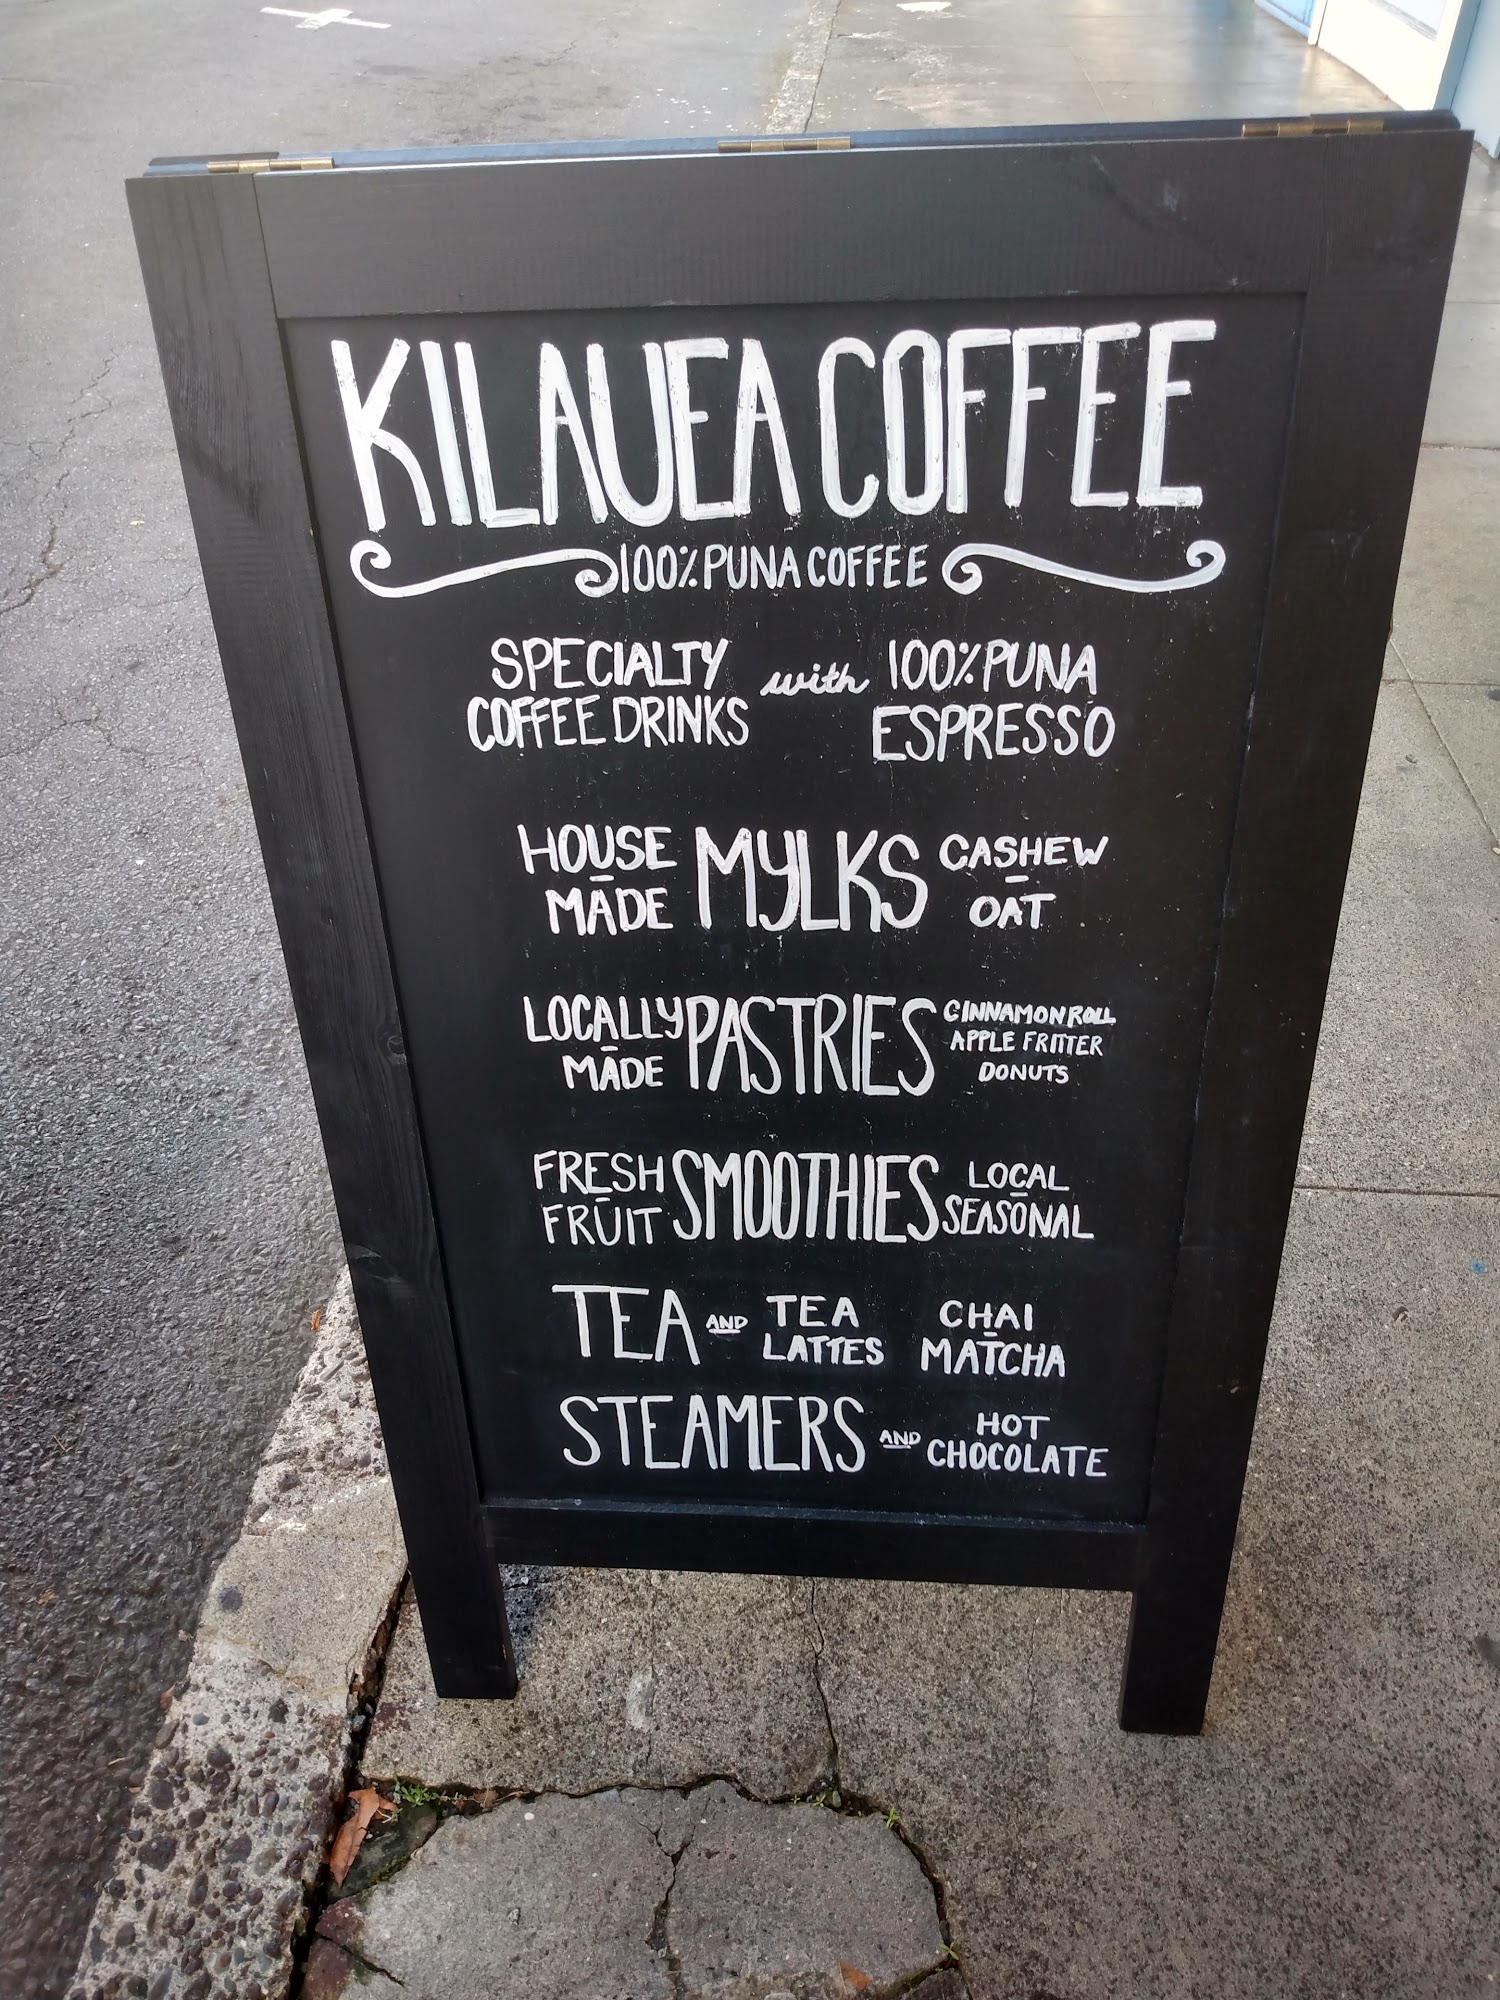 KILAUEA COFFEE
100% PUNA COFFEE
SPECIALTY COFFEE DRINKS with 100% PUNA ESPRESSO
HOUSE MADE MYLKS CASHEW - OAT
LOCALLY MADE PASTRIES CINNAMON ROLL APPLE FRITTER DONUTS
FRESH FRUIT SMOOTHIES LOCAL SEASONAL
TEA AND TEA LATTES CHAI - MATCHA
STEAMERS AND HOT CHOCOLATE